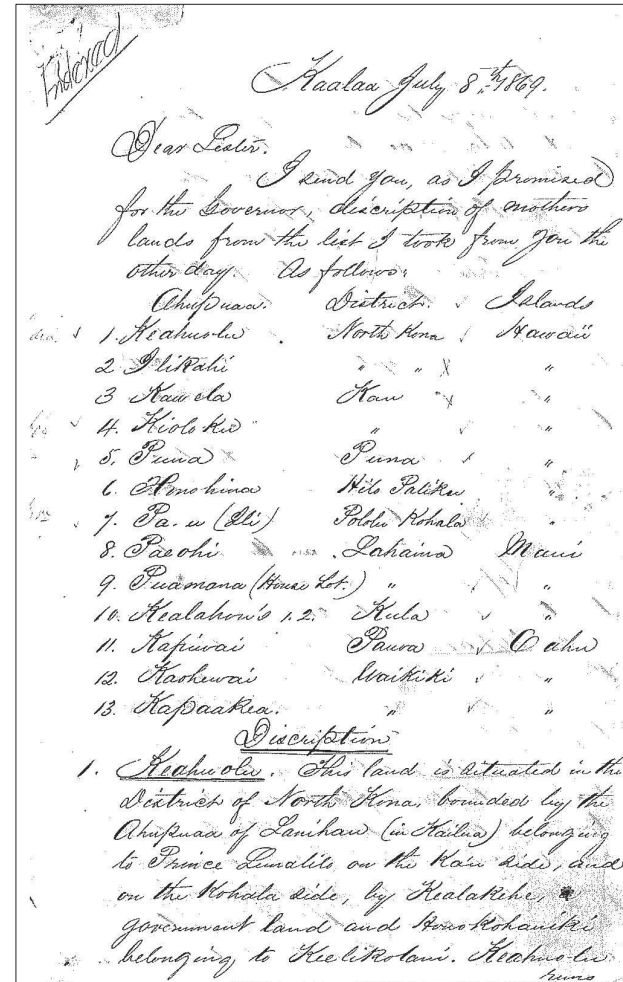 Indexed
Kaalaa July 8th 1869.
Dear Sister.
I send you, as I promised
for the Governor, discription of mothers
lands from the list I took from you the
other day. As follows,
Ahupuaa. District. Islands
1. Keahuolu North Kona Hawaii
2 Ilikahi " " "
3 Kawela Kau "
4. Kioloku " "
5. Puna Puna "
6. Honohina Hilo Paliku "
7. Pa-u (Ili) Pololu Kohala "
8. Paeohi Lahaina Maui
9. Puamana (House Lot.) " "
10. Kealahou's 1.2. Kula "
11. Kapiwai Pauoa Oahu
12. Kaohewai Waikiki "
13. Kapaakea. " "
Discription
1. Keahuolu. This land is situated in the
District of North Kona, bounded by the
Ahupuaa of Lanihau (in Kailua) belonging
to Prince Lunalilo on the Kau side, and
on the Kohala side, by Kealakehe, a
government land and Honokohauiki
belonging to Keelikolani. Keahuolu
runs